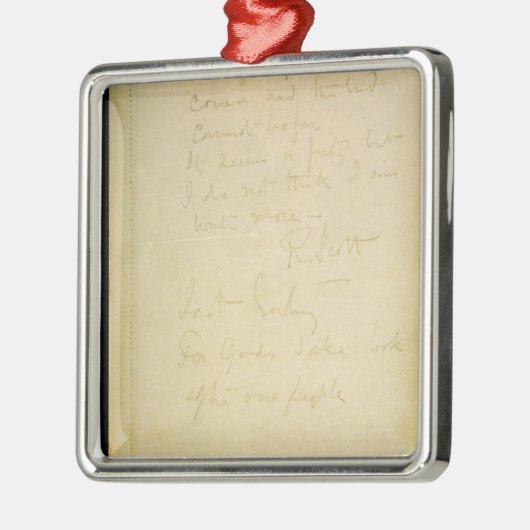 course and the end
cannot be far,
It seems a pity but
I do not think I can
write more —
R. Scott
Last Entry
For Gods sake look
after our people